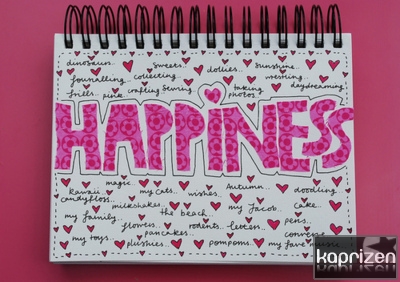 dinosaurs.. sweets.. dollies.. sunshine..
journalling.. collecting.. wrestling..
frills.. pink.. crafting sewing.. taking photos.. daydreaming
HAPPINESS
kawaii.. magic.. my cats.. wishes.. Autumn.. doodling..
candyfloss.. milkshakes.. the beach.. my Jacob.. cake..
my family.. flowers.. rodents.. letters.. pens..
my toys.. pancakes.. plushies.. pompoms.. my fave music..
kaprizen